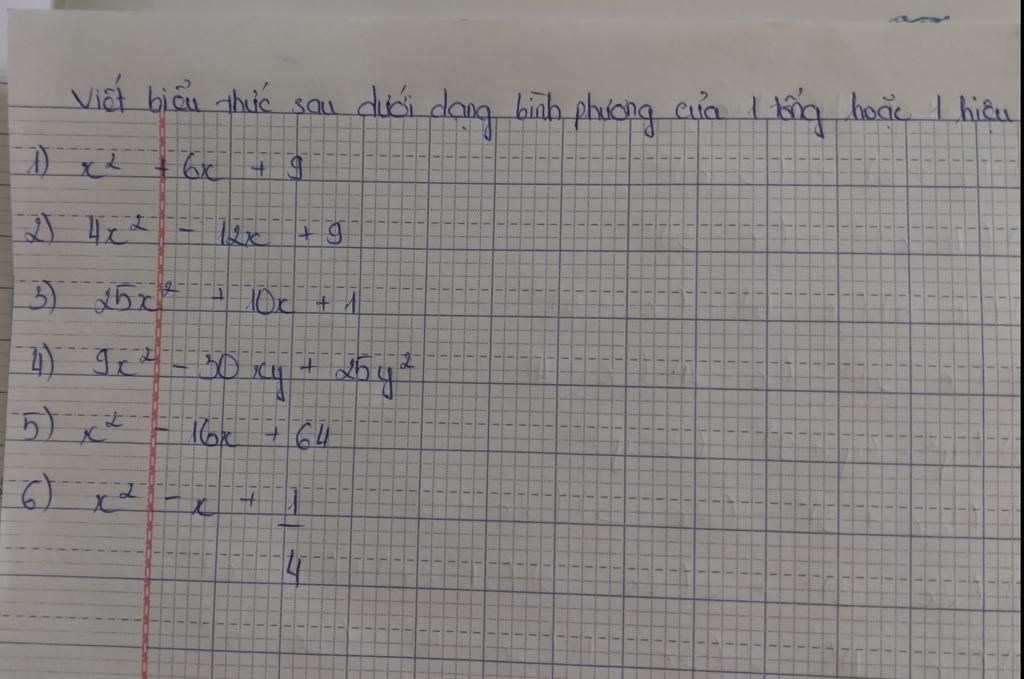 Viết biểu thức sau dưới dạng bình phương của 1 tổng hoặc 1 hiệu
1) x² + 6x + 9
2) 4x² - 12x + 9
3) 25x² + 10x + 1
4) 9x² - 30xy + 25y²
5) x² - 16x + 64
6) x² - x + 1/4